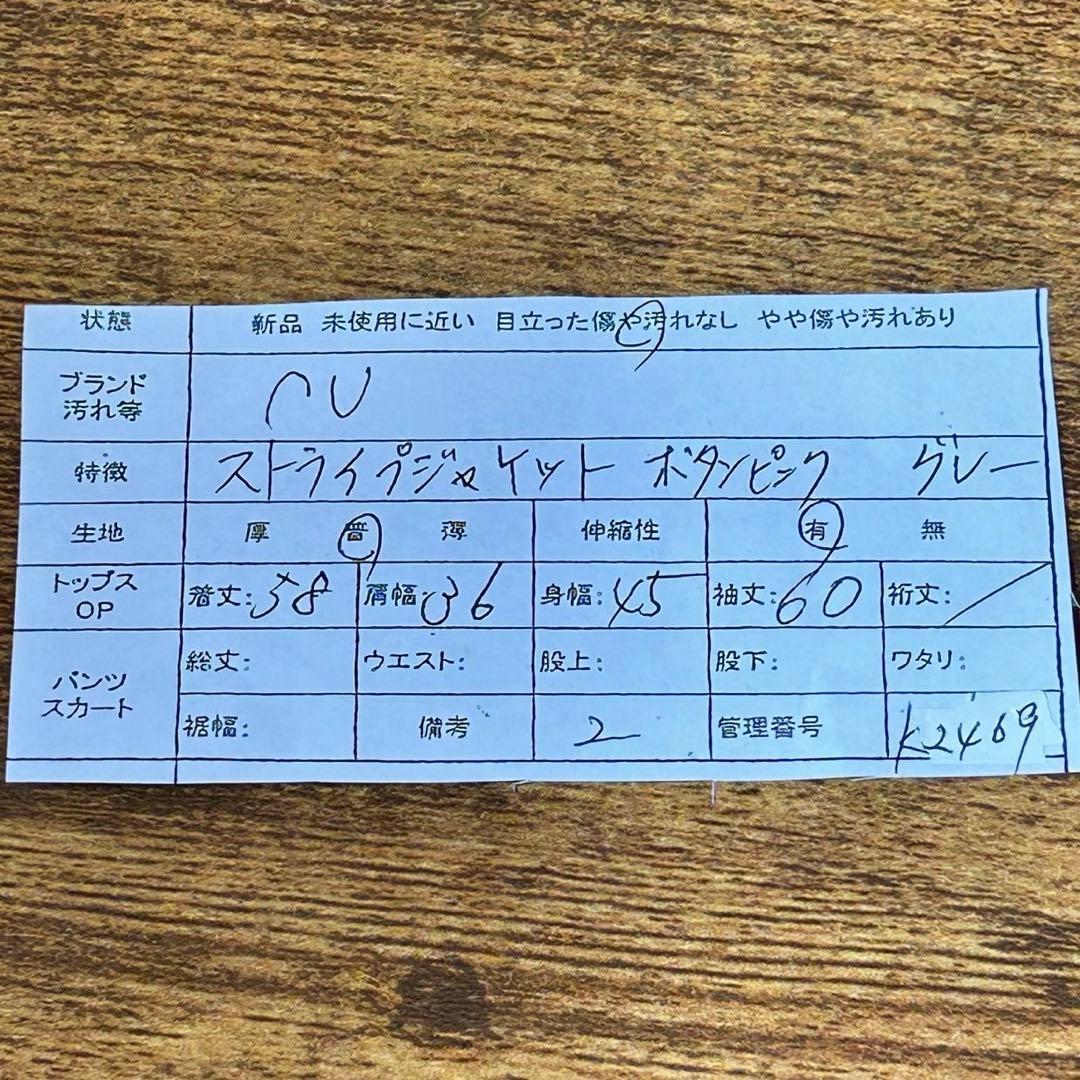 状態 新品 未使用に近い 目立った傷や汚れなし やや傷や汚れあり
ブランド
汚れ等
特徴 ストライプジャケット ボタンピンク グレー
生地 厚 普 薄 伸縮性 有 無
トップス
OP
着丈: 肩幅: 36 身幅: 45 袖丈: 60 裄丈: /
パンツ
スカート
総丈: ウエスト: 股上: 股下: ワタリ:
裾幅: 備考 2 管理番号 k2469